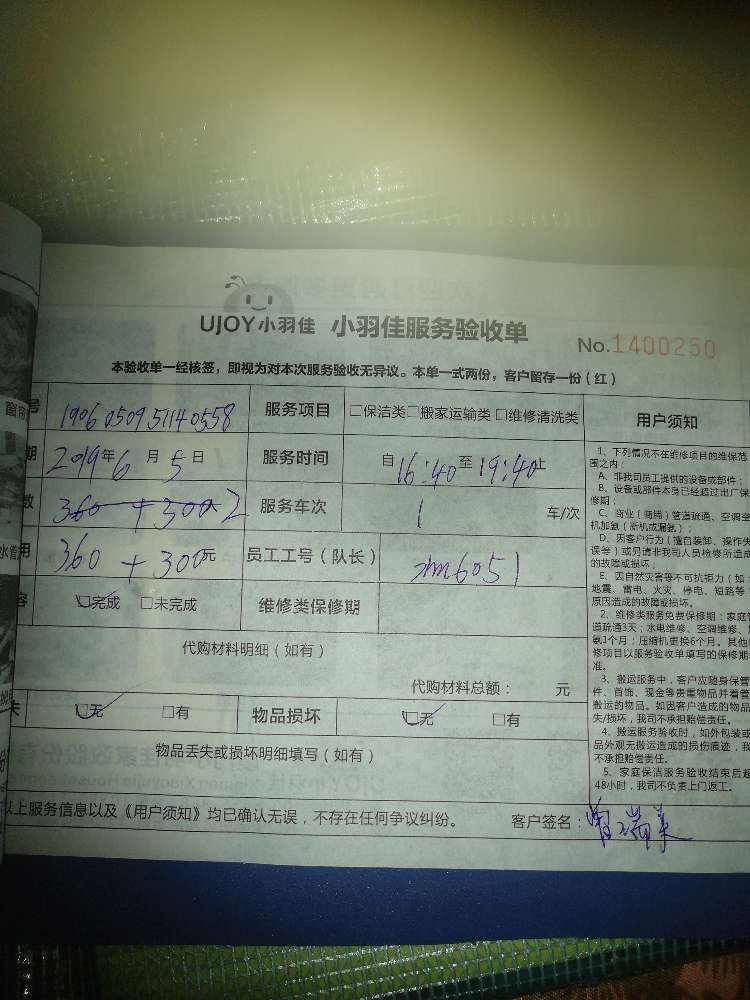 UJOY小羽佳 小羽佳服务验收单
No.1400250
本验收单一经核签，即视为对本次服务验收无异议。本单一式两份，客户留存一份（红）
号 1906050951140558 服务项目 □保洁类□搬家运输类□维修清洗类
期 2019年6月5日 服务时间 自16:40至19:40止
数 360+300 2 服务车次 1 车/次
用 360+300元 员工工号（队长） xm6051
容 □完成 □未完成 维修类保修期
代购材料明细（如有）
代购材料总额： 元
失 □无 □有 物品损坏 □无 □有
物品丢失或损坏明细填写（如有）
以上服务信息以及《用户须知》均已确认无误，不存在任何争议纠纷。 客户签名：曾瑞美
用户须知
1、下列情况不在维修项目的维保范
围之内：
A、非我司员工提供的设备或部件；
B、设备或部件本身已经超过出厂保
修期；
C、商业（商铺）管道疏通、空调空
机加氨（新机或漏氨）；
D、因客户行为（擅自装卸、操作失
误等）或另请非我司人员检修所造成
的故障或损坏；
E、因自然灾害等不可抗拒力（如：
地震、雷电、火灾、停电、短路等）
原因造成的故障或损坏。
2、维修类服务免费保修期：家庭管
道疏通3天；水电维修、空调维修、
氨1个月；压缩机更换6个月。其他
修项目以服务验收单填写的保修期
准。
3、搬运服务中，客户应随身保管
件、首饰、现金等贵重物品并看管
搬运的物品。如因客户造成的物品
失/损坏，我司不承担赔偿责任。
4、搬运服务验收时，如外包装或
品外观无搬运造成的损伤痕迹，我
不承担赔偿责任。
5、家庭保洁服务验收结束后超
48小时，我司不负责上门返工。